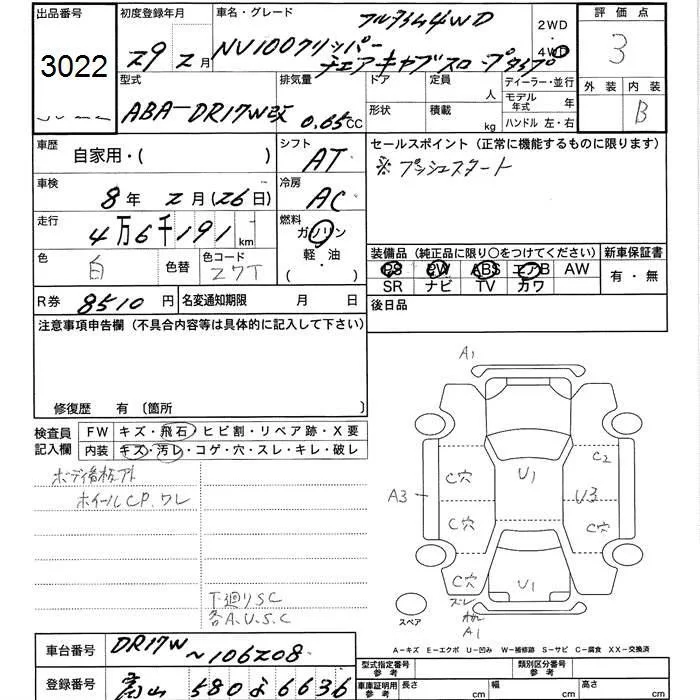 出品番号
3022
初度登録年月
29年2月
車名・グレード
フルタイム4WD
NV100クリッパー
チェアキャブスロープタイプ
2WD
・
4WD
評価点
3
外装 内装
B
型式
ABA-DR17W改
排気量
0.65CC
ドア
形状
定員
人
積載
kg
ディーラー・並行
モデル年式 年
ハンドル 左・右
車歴
自家用・( )
シフト
AT
セールスポイント(正常に機能するものに限ります)
※プッシュスタート
車検
8年2月(26日)
冷房
AC
走行
4万6千191km
燃料
ガソリン
軽・油
( )
色
白
色替
色コード
Z7T
装備品(純正品に限り○をつけてください)
新車保証書
PS PW ABS エアB AW
SR ナビ TV カワ
有・無
R券 8510円
名変通知期限 月 日
後日品
注意事項申告欄(不具合内容等は具体的に記入して下さい)
修復歴 有〔箇所 〕
検査員記入欄
FW キズ・飛石・ヒビ割・リペア跡・X要
内装 キズ・汚レ・コゲ・穴・スレ・キレ・破レ
ホイールCP.ワレ
下廻りSC
各A.U.S.C
A1
U1
C2
C穴
A3
U3
C穴
C穴
C穴
U1
ズレ
A1
スペア
A-キズ E-エクボ U-凹み W-補修跡 S-サビ C-腐食 XX-交換済
車台番号
DR17W
~106208
登録番号
富山 580 よ 6636
型式指定番号
参考
類別区分番号
参考
車庫証明用
参考
長さ cm
幅 cm
高さ cm